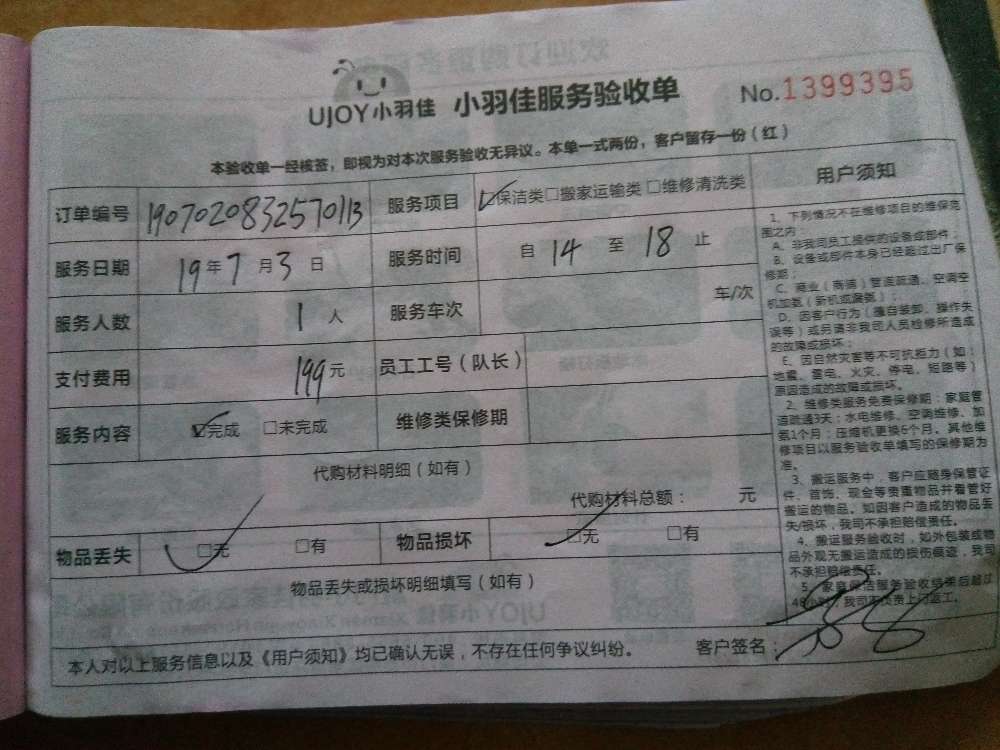 UJOY小羽佳 小羽佳服务验收单 No.1399395
本验收单一经核签，即视为对本次服务验收无异议。本单一式两份，客户留存一份（红）
订单编号 1907020832570113 服务项目 ☑保洁类□搬家运输类 □维修清洗类
服务日期 19年7月3日 服务时间 自 14 至 18 止
服务人数 1 人 服务车次 车/次
支付费用 199元 员工工号（队长）
服务内容 ☑完成 □未完成 维修类保修期
代购材料明细（如有）
代购材料总额： 元
物品丢失 ☑无 □有 物品损坏 ☑无 □有
物品丢失或损坏明细填写（如有）
本人对以上服务信息以及《用户须知》均已确认无误，不存在任何争议纠纷。 客户签名：
用户须知
1、下列情况不在维修项目的维保范
围之内：
A、非我司员工提供的设备或部件；
B、设备或部件本身已经超过出厂保
修期；
C、商业（商铺）管道疏通、空调空
机加氨（新机或漏氨）；
D、因客户行为（擅自装卸、操作失
误等）或另请非我司人员检修所造成
的故障或损坏；
E、因自然灾害等不可抗拒力（如：
地震、雷电、火灾、停电、短路等）
原因造成的故障或损坏。
2、维修类服务免费保修期：家庭管
道疏通3天；水电维修、空调维修、加
氨1个月；压缩机更换6个月。其他维
修项目以服务验收单填写的保修期为
准。
3、搬运服务中，客户应随身保管证
件、首饰、现金等贵重物品并看管好
搬运的物品。如因客户造成的物品丢
失/损坏，我司不承担赔偿责任。
4、搬运服务验收时，如外包装或物
品外观无搬运造成的损伤痕迹，我司
不承担赔偿责任。
5、家庭保洁服务验收结束后超过
48小时，我司不负责上门返工。